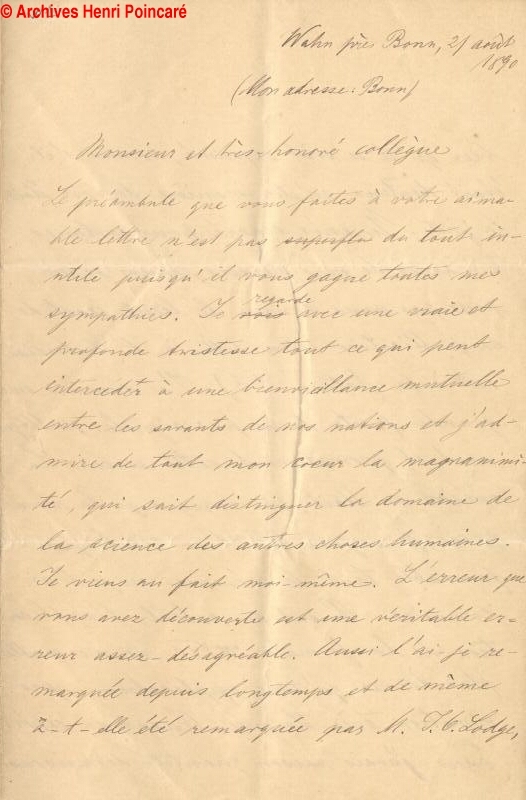 © Archives Henri Poincaré
Wahn près Bonn, 21 août
1890
(Mon adresse: Bonn)
Monsieur et très-honoré collègue
Le préambule que vous faites à votre aima-
ble lettre n'est pas superflu du tout in-
utile puisqu'il vous gagne toutes mes
regarde
sympathies. Je vois avec une vraie et
profonde tristesse tout ce qui peut
interceder à une bienveillance mutuelle
entre les savants de nos nations et j'ad-
mire de tout mon coeur la magnanimi-
té, qui sait distinguer la domaine de
la science des autres choses humaines.
Je viens au fait moi-même. L'erreur que
vous avez découverte est une véritable er-
reur assez-désagréable. Aussi l'ai-je re-
marquée depuis longtemps et de même
a-t-elle été remarquée par M. Lodge,